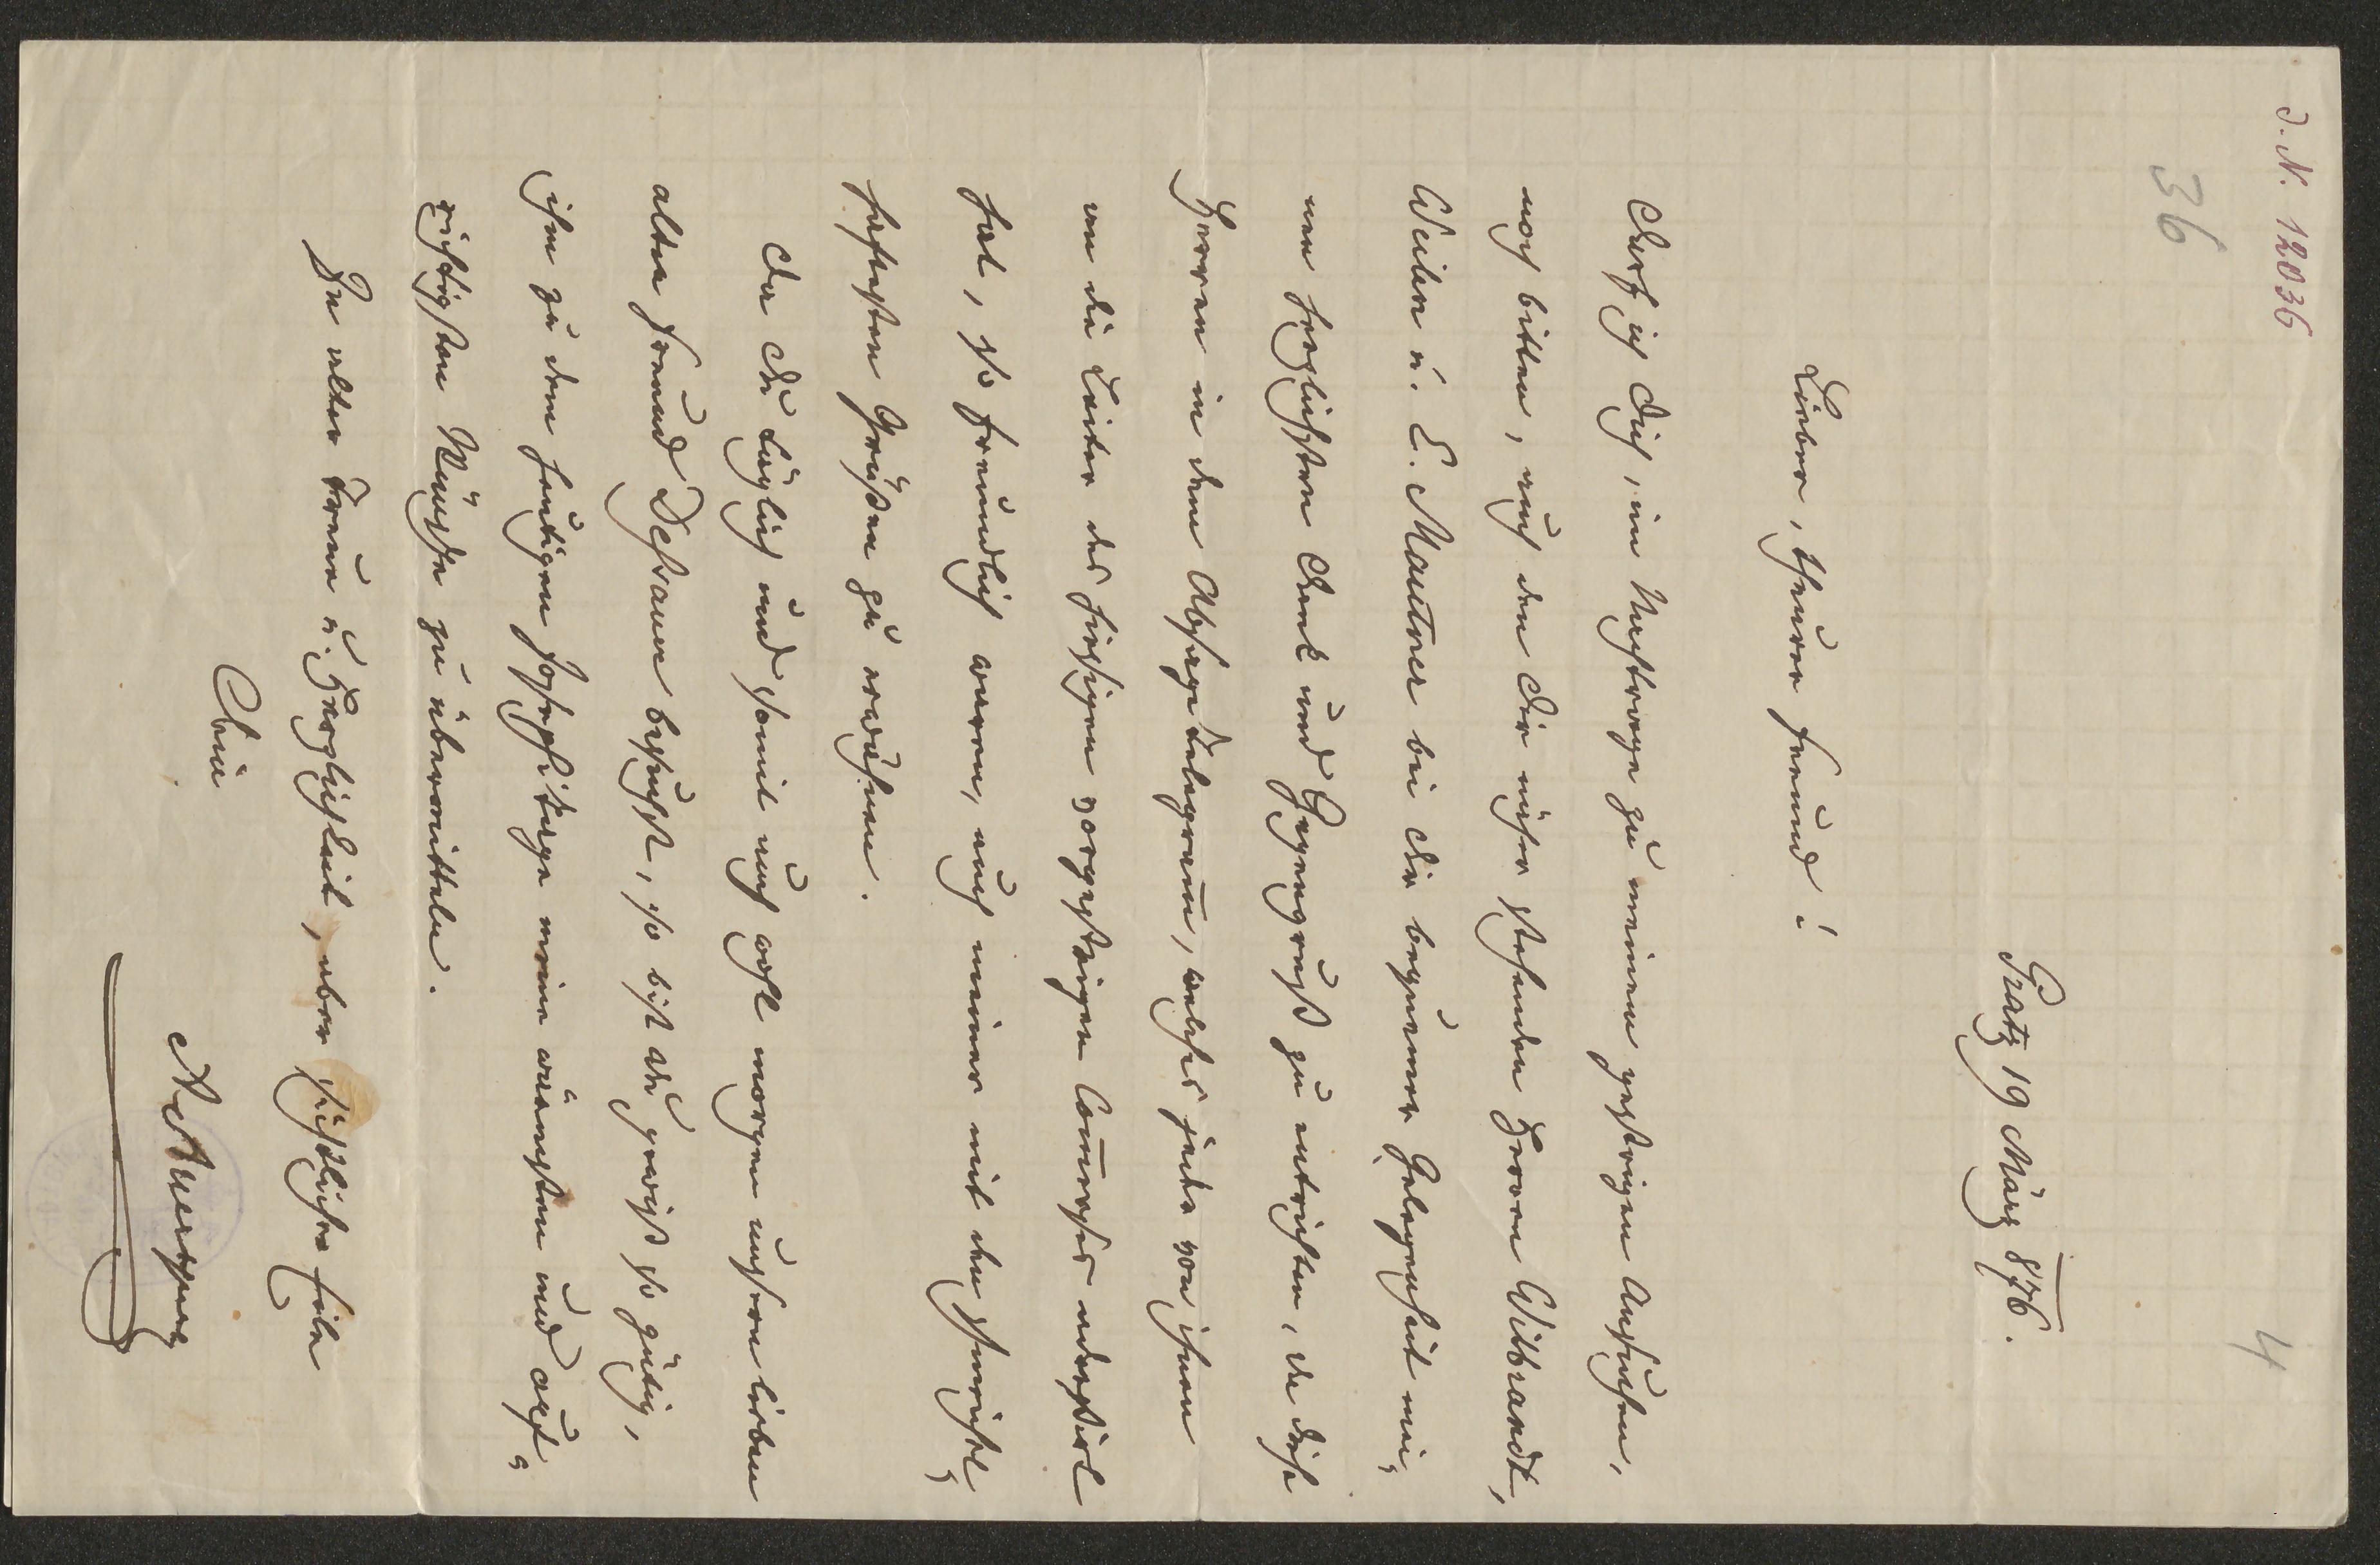 J. N. 12036
36
4
Gratz 19 März 876.
Lieber, theurer Freund!
Darf ich Dich, im Nachtrage zu meinem gestrigen Ansuchen,
noch bitten, auch den Dir näher stehenden Herren Wilbrandt,
Weilen u. L. Mautner bei Dir bequemer Gelegenheit mei-
nen herzlichsten Dank und Gegengruß zu entrichten, da diese
Herren in dem Absagetelegram̄, welches jeder von ihnen
an die Leiter des hiesigen vorgestrigen Com̄erses adressirt
hat, so freundlich waren, auch meiner mit den schmeichel-
haftesten Grüßen zu erwähnen.
Da Du täglich und somit auch wohl morgen unseren lieben
alten Freund Dessauer besuchst, so bist Du gewiß so gütig,
ihm zu dem heutigen Josephitage meine wärmsten und auf-
richtigsten Wünsche zu übermitteln.
In alter Treue u. Herzlichkeit, aber
Dein
AAuersperg